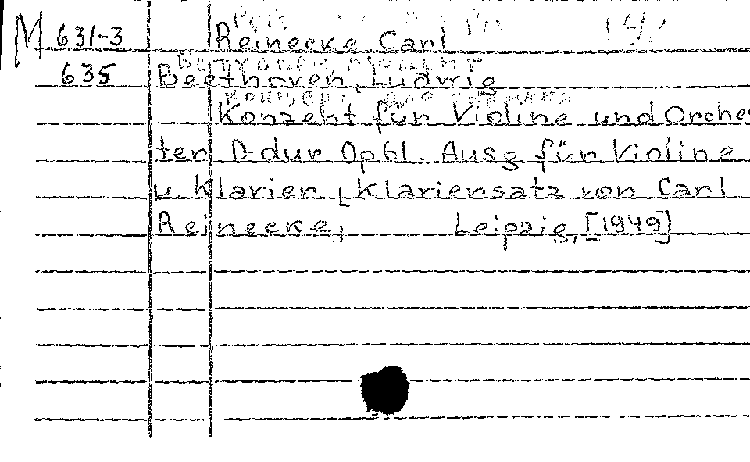 M 631-3 Reinecke Carl
635 Beethoven, Ludwig
Konzeht für Violine und Orches
ter D dur Op61. Ausg für Violine
u. Klavier [Klaviersatz von Carl
Reinecke, Leipzig, [1949]